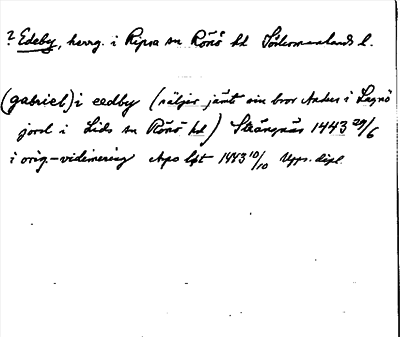 ? Edeby, herrg. i Ripsa sn Rönö hd Södermanlands l.
(gabriel) i eedby (säljer jämte sin bror Anders i Lagnö
jord i Lids sn Rönö hd) Strängnäs 1443 29/6
i orig-vidimering Apo lgt 1443 10/10 Upps. dipl.